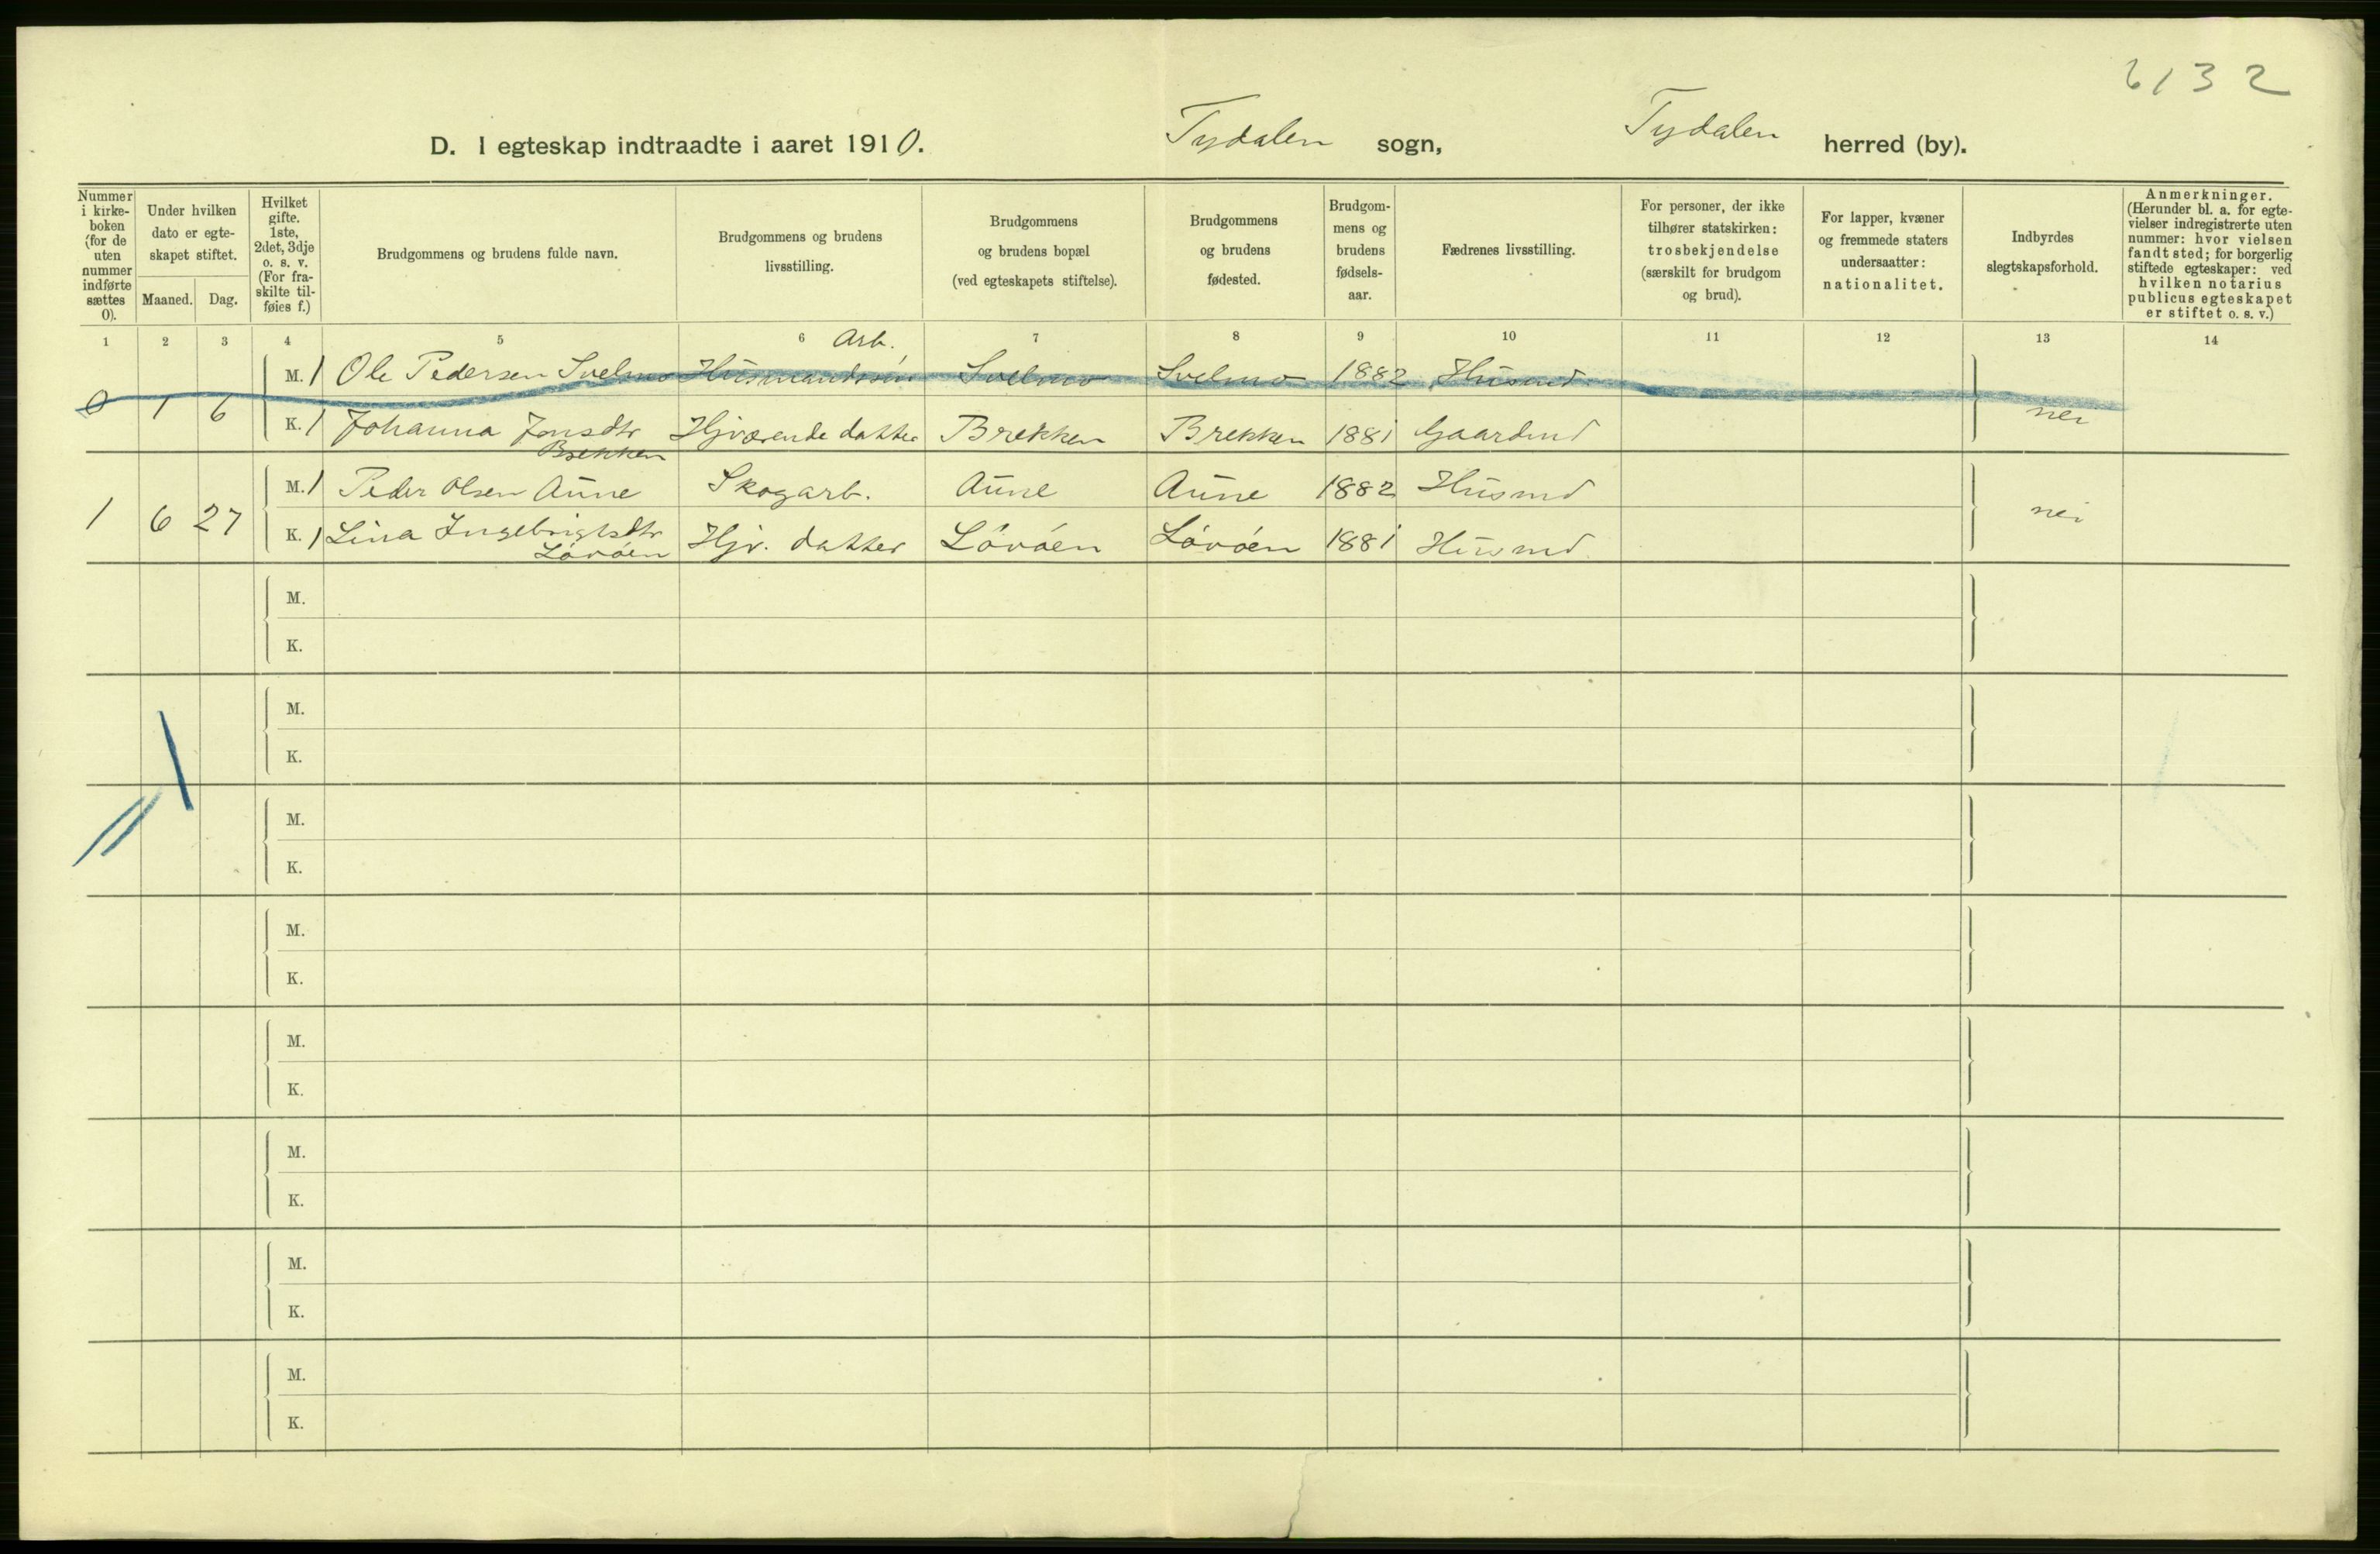 6132
D. I egteskap indtraadte i aaret 1910. Tydalen sogn, Tydalen herred (by).
Nummer i kirke-boken (for de uten nummer indførte sættes 0).
Under hvilken dato er egte-skapet stiftet.
Maaned. Dag.
Hvilket gifte. 1ste, 2det, 3dje o. s. v. (For fra-skilte til-føies f.)
Brudgommens og brudens fulde navn.
Brudgommens og brudens livsstilling.
Brudgommens og brudens bopæl (ved egteskapets stiftelse).
Brudgommens og brudens fødested.
Brudgom-mens og brudens fødsels-aar.
Fædrenes livsstilling.
For personer, der ikke tilhører statskirken: trosbekjendelse (særskilt for brudgom og brud).
For lapper, kvæner og fremmede staters undersaatter: nationalitet.
Indbyrdes slegtskapsforhold.
Anmerkninger. (Herunder bl. a. for egte-vielser indregistrerte uten nummer: hvor vielsen fandt sted; for borgerlig stiftede egteskaper: ved hvilken notarius publicus egteskapet er stiftet o. s. v.)
1 2 3 4 5 6 7 8 9 10 11 12 13 14
Arb.
M. 1 Ole Pedersen Svelmo Husmandssøn Svelmo Svelmo 1882 Husmd
0 1 6 nei
K. 1 Johanna Jonsdtr Brekken Hjværende datter Brekken Brekken 1881 Gaardmd
M. 1 Peder Olsen Aune Skogarb. Aune Aune 1882 Husmd
1 6 27 nei
K. 1 Lina Ingebrigtsdtr Løvøen Hjv. datter Løvøen Løvøen 1881 Husmd.
M.
K.
M.
K.
M.
K.
M.
K.
M.
K.
M.
K.
M.
K.
M.
K.